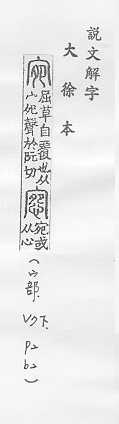 説文解字
大徐本
宛
屈草自覆也从
宀夗聲於阮切
惌
宛或
从心
(宀部. V7下. P2 b2)